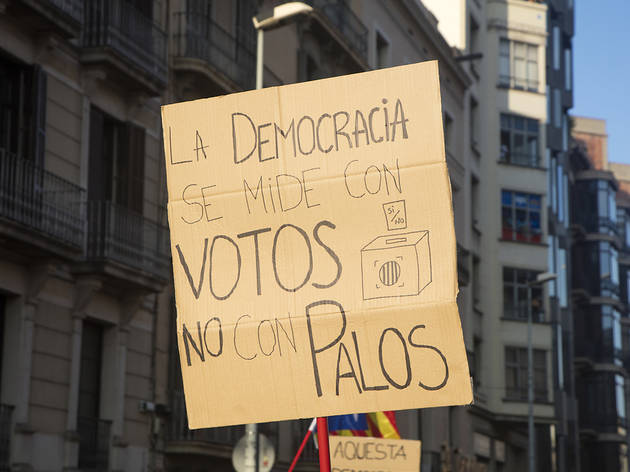 LA DEMOCRACiA
SE MiDE CON
Si/NO
VOTOS
NO CON PALOS
AQUESTA